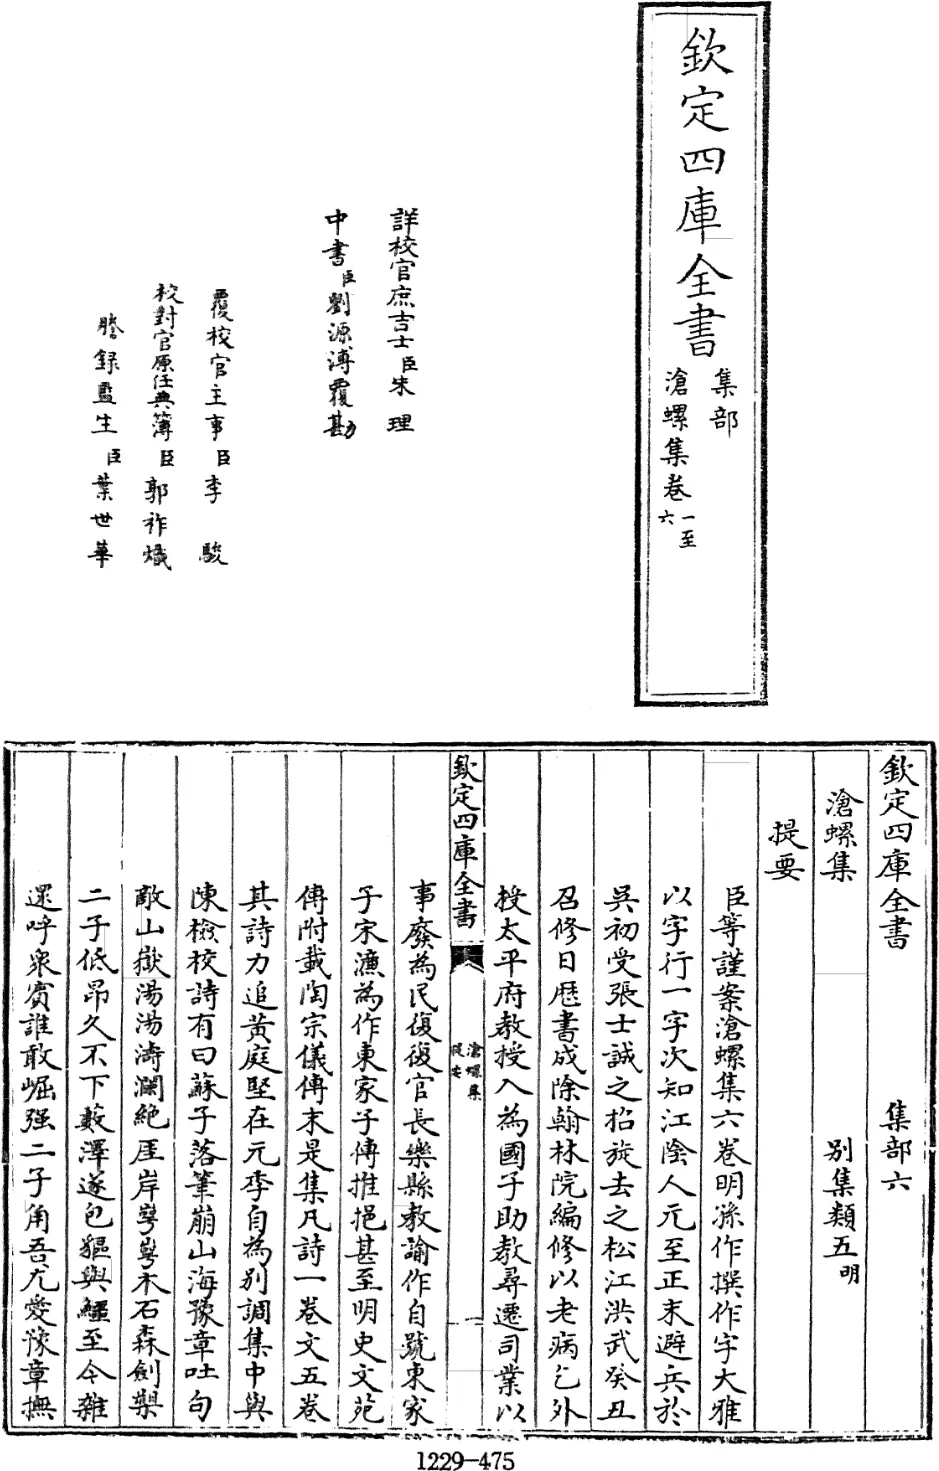 欽定四庫全書
集部
滄螺集卷一至六
詳校官庶吉士臣朱理
中書臣劉源溥覆勘
覆校官主事臣李駿
校對官原任典簿臣郭祚熾
謄錄監生臣葉世華
欽定四庫全書 集部六
滄螺集 別集類五明
提要
臣等謹案滄螺集六卷明孫作撰作字大雅
以字行一字次知江陰人元至正末避兵於
吳初受張士誠之招旋去之松江洪武癸丑
召修日厯書成除翰林院編修以老病乞外
授太平府教授入為國子助教尋遷司業以
欽定四庫全書
滄螺集
提要
一
事廢為民復復官長樂縣教諭作自號東家
子宋濂為作東家子傳推挹甚至明史文苑
傳附載陶宗儀傳末是集凡詩一卷文五卷
其詩力追黄庭堅在元季自為別調集中與
陳檢校詩有曰蘇子落筆崩山海豫章吐句
敵山嶽湯湯濤瀾絶厓岸㟧㟧木石森劍槊
二子低昂久不下藪澤遂包貙與鱷至今雜
遝呼衆賓誰敢崛强二子角吾尤愛豫章撫
1229-475